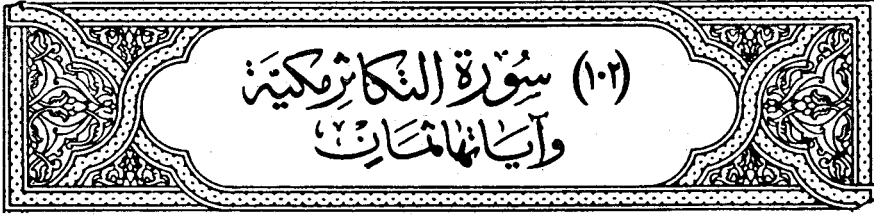 (١٠٢) سُورَة التكاثر مكيَّة
وآيَاتها ثمَانِ